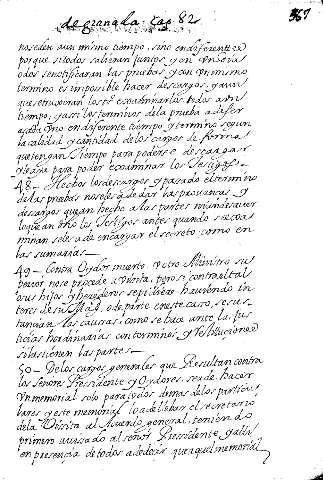 de granada. cap. 82
no se den a un mismo tiempo, sino en diferente es
porque si todos salieran juntos, y en un dia
a dos se notificaran las pruebas y a un mismo
termino es imposible hacer descargos, y aun
que estuvieran los escriuanos todos a un
tiempo, y assi los terminos de la prueba a de ser
a cada uno en diferente tiempo y termino segun
la calidad y cantidad de los cargos de forma
que tengan tiempo para poderse descargar
para poder examinar los testigos.
48 - Hechos los descargos y pasado el termino
de las pruebas no se les a de dar las prouanças y
descargos que an hecho a las partes ni menos auer
los testigos antes quando se exsa
minan se les a de encargar el secreto como en
las sumarias -
49 - Contra Oydor muerto, u otro Ministro su
perior no se procede a visita, pero si contra el tal
o sus hijos y herederos se pidiere hauiendo in
teres de su Mag. o de parte en este caso, se sus
tancian las causas, como se hace ante la Jus
ticias hordinarias con terminos y restituciones
si las tienen las partes -
50 - De los cargos generales que Resultan contra
los señores Presidente y Oydores, se a de hacer
un memorial solo para todos demas de los particu
lares y este memorial lo a de llebar el secretario
de la Visita al Acuerdo general, teniendo
primero auisado al señor Pressidente y alli
en presencia de todos a de decir que aquel memorial